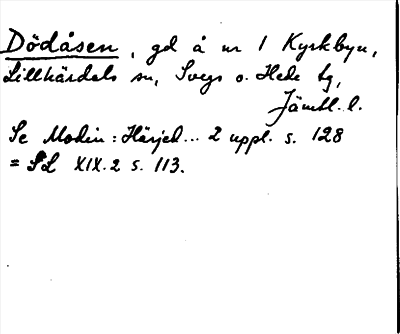 Dödåsen, gd å nr 1 Kyrkbyn,
Lillhärdals sn, Svegs o. Hede tg,
Jämtl. l.
Se Modin: Härjed... 2 uppl. s. 128
= SL XIX.2 s. 113.